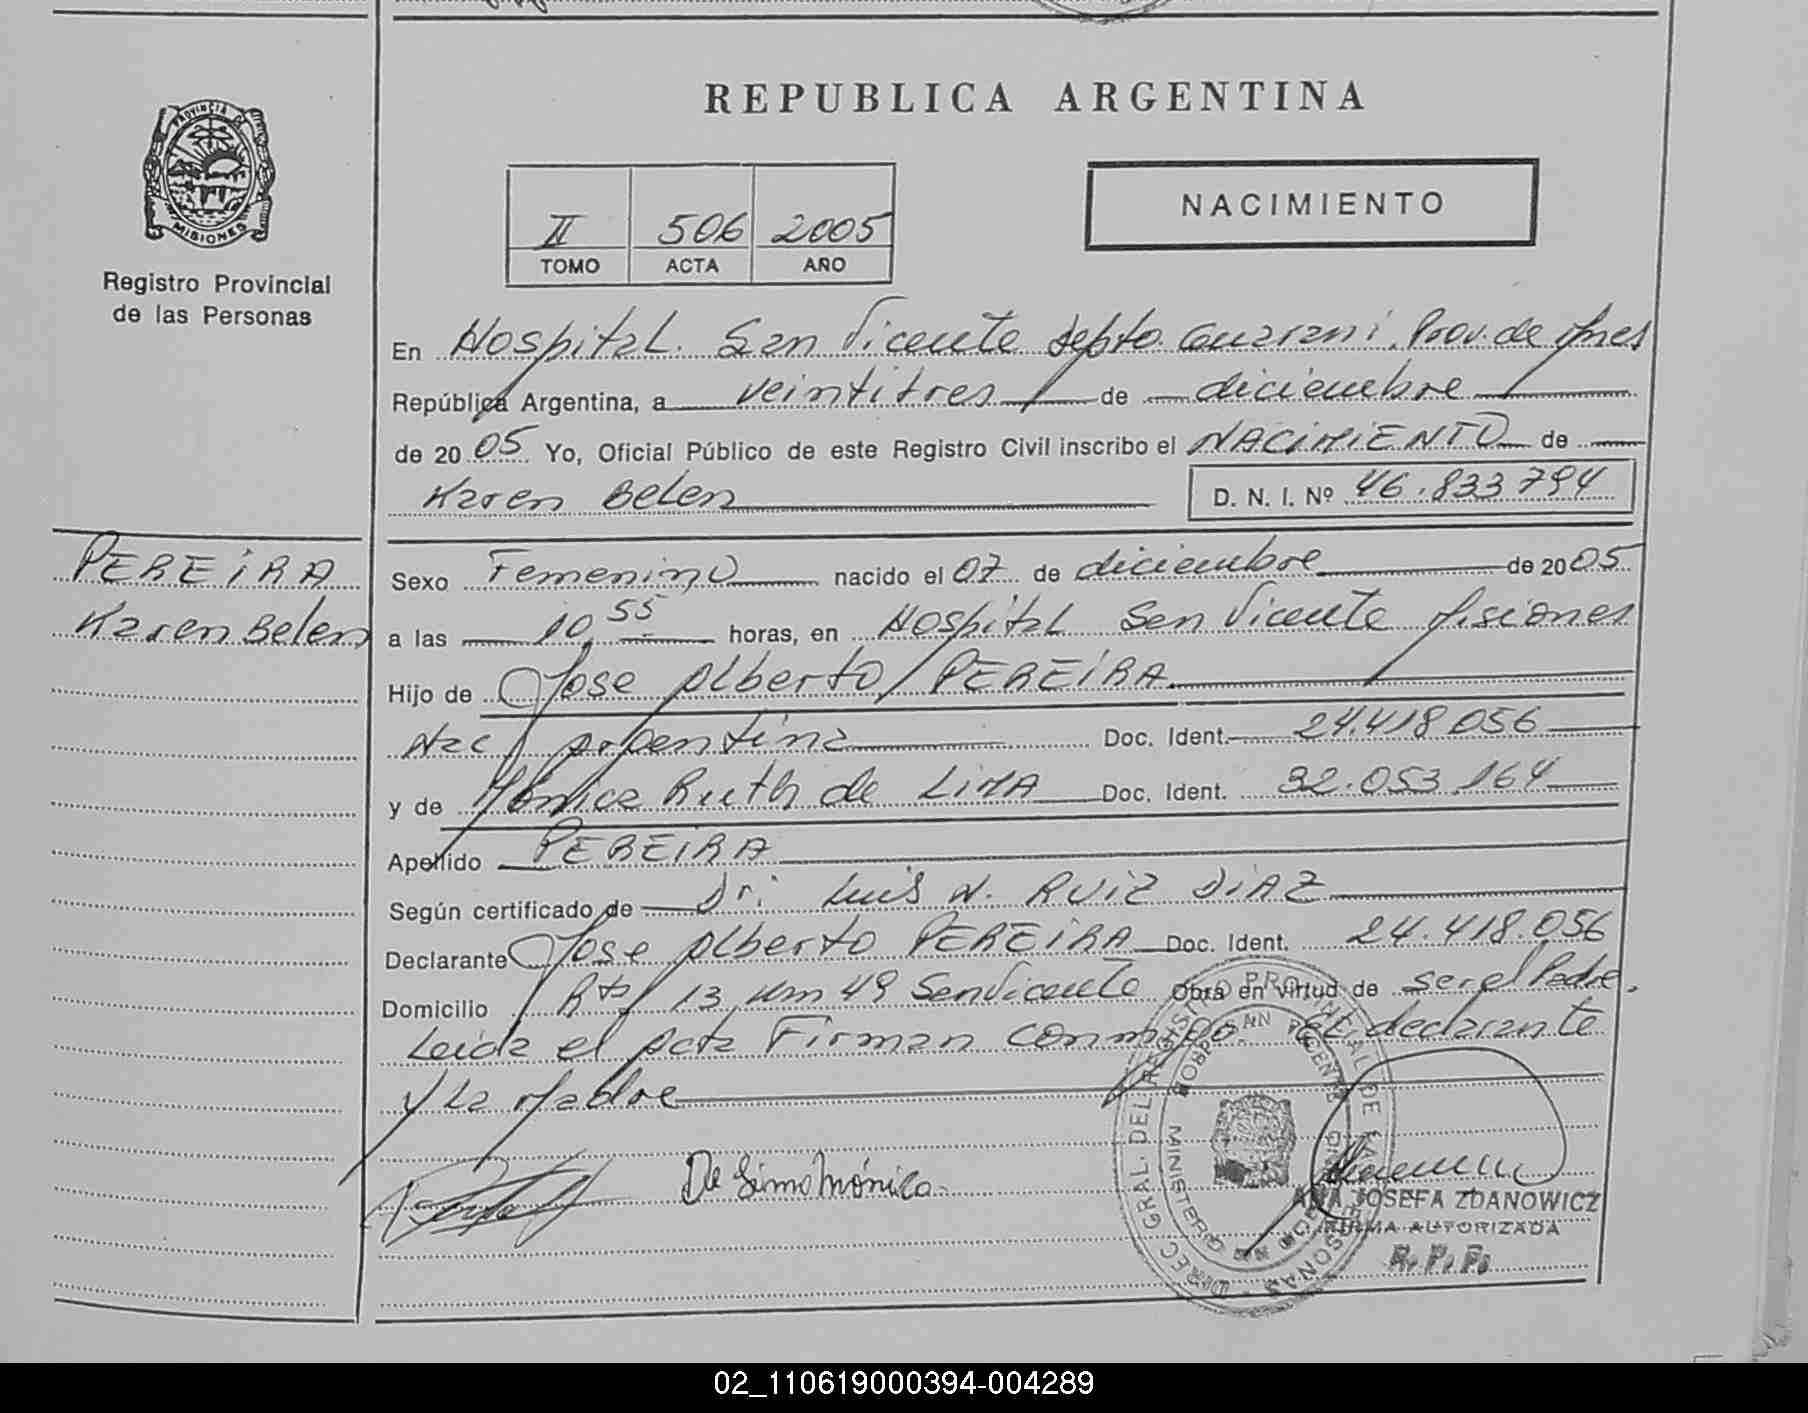 REPUBLICA ARGENTINA
PROVINCIA DE
MISIONES
Registro Provincial
de las Personas
NACIMIENTO
II 506 2005
TOMO ACTA AÑO
En Hospital San Vicente depto. Guarani, Prov. de Mnes
República Argentina, a veintitres de diciembre
de 2005 Yo, Oficial Público de este Registro Civil inscribo el NACIMIENTO de
Karen Belen D. N. I. Nº 46.833 794
PEREIRA
Karen Belen
Sexo Femenino nacido el 07 de diciembre de 2005
a las 10,55 horas, en Hospital San Vicente Misiones
Hijo de Jose Alberto PEREIRA
Nac Argentina Doc. Ident. 24.418 056
y de Mónica Ruth de LIMA Doc. Ident. 32.053 164
Apellido PEREIRA
Según certificado de Dr. Luis N. RUIZ DIAZ
Declarante Jose Alberto PEREIRA Doc. Ident. 24.418.056
Domicilio Rta 13 Km 49 San Vicente Obra en virtud de ser el Padre.
Leida el Acta Firman conmigo. el declarante
y La Madre
De Lima Mónica
DIREC. GRAL. DEL REGISTRO PROVINCIAL DE LAS PERSONAS
HOSP. SAN VICENTE
MINISTERIO DE GOBIERNO
ANA JOSEFA ZDANOWICZ
FIRMA AUTORIZADA
R. P. P.
02_110619000394-004289